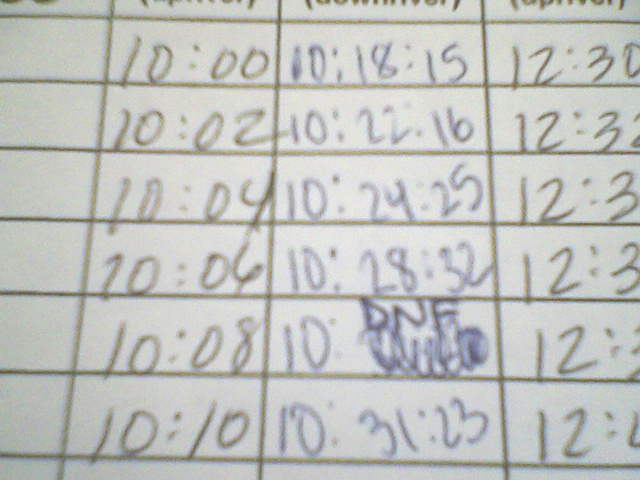 (upriver) (downriver) (upriver)
10:00 10:18:15 12:30
10:02 10:22:16 12:32
10:04 10:24:25 12:3
10:06 10:28:32 12:3
10:08 10: DNF 12:3
10:10 10:31:23 12:4